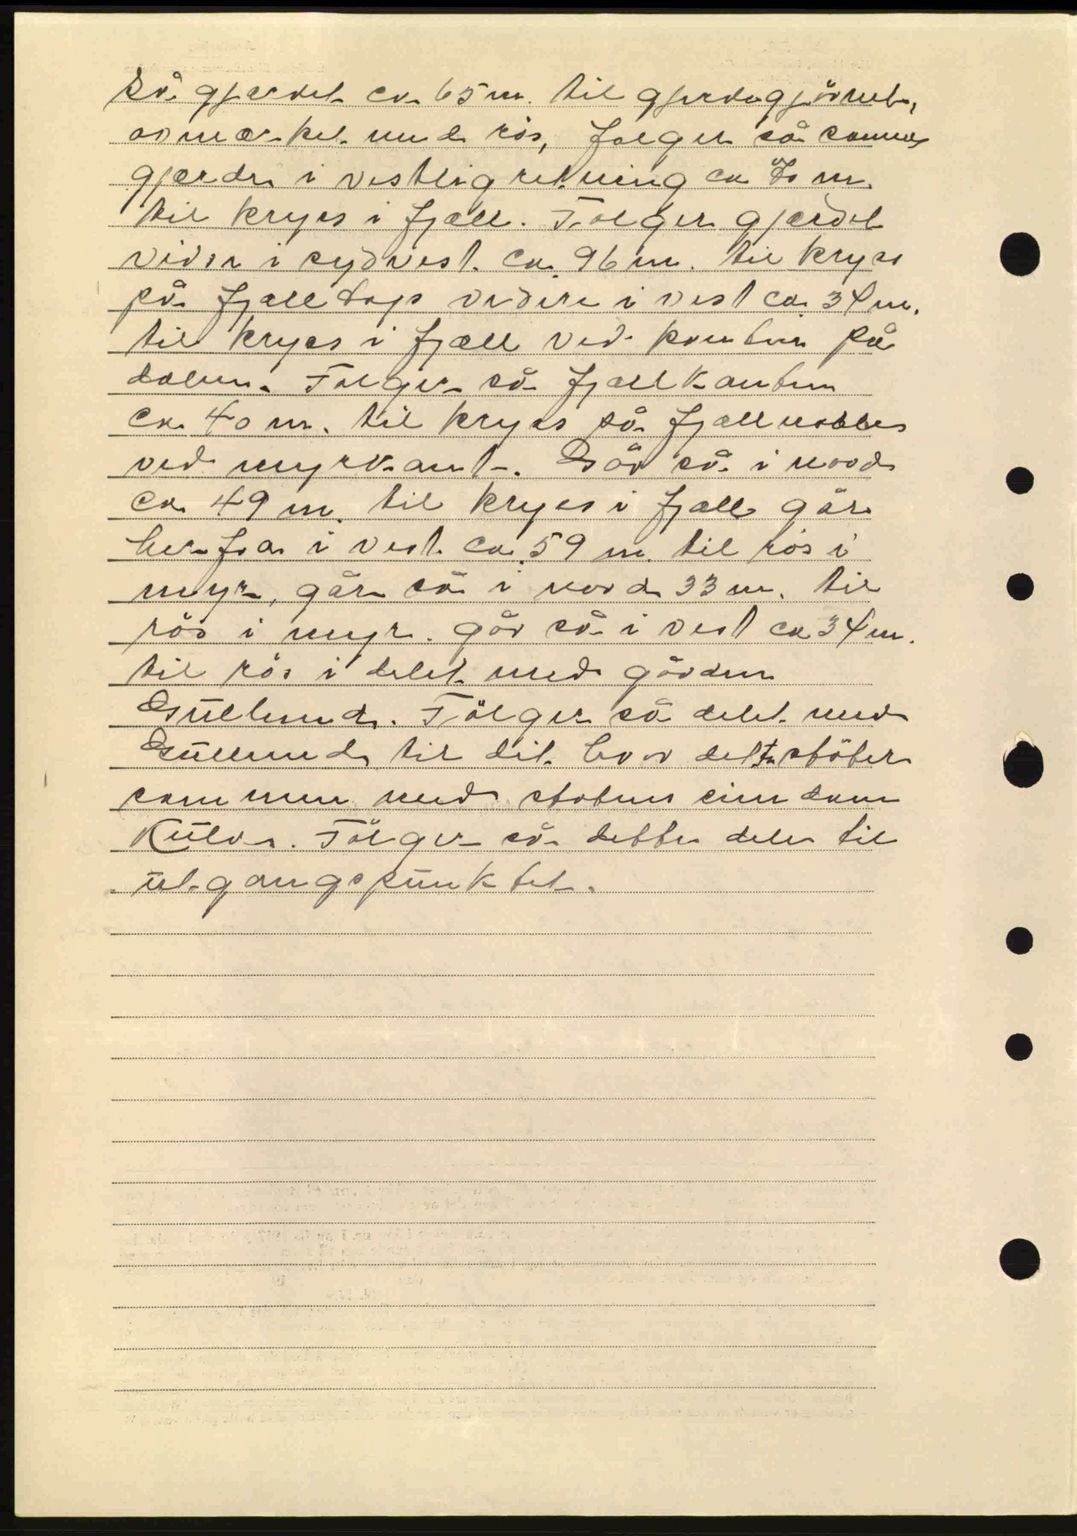 så gjærdet ca 65 m. til gjerdegjörnet,
avmærket med rös, følger så samme
gjærde i vestlig retning ca m.
til kryss i fjæll. Følger gjærdet
vider i sydvest. ca. 96 m. til kryss
på fjælltopp videre i vest ca 34 m.
til kryss i fjæll ved kanten på
dalen. Følger så fjællkanten
ca 40 m. til kryss på fjællnabbe
ved myrkant. Går så i nord
ca 49 m. til kryss i fjæll går
herfra i vest ca. 59 m. til rös i
myr, går så i nord 33 m. til
rös i myr. går så i vest ca 34 m.
til rös i delet med gården
Gullund. Fölger så delet med
Gullund til dit hvor delet stöter
sammen med statens eiendom
Kulås. Fölger så dette dele til
utgangspunktet.